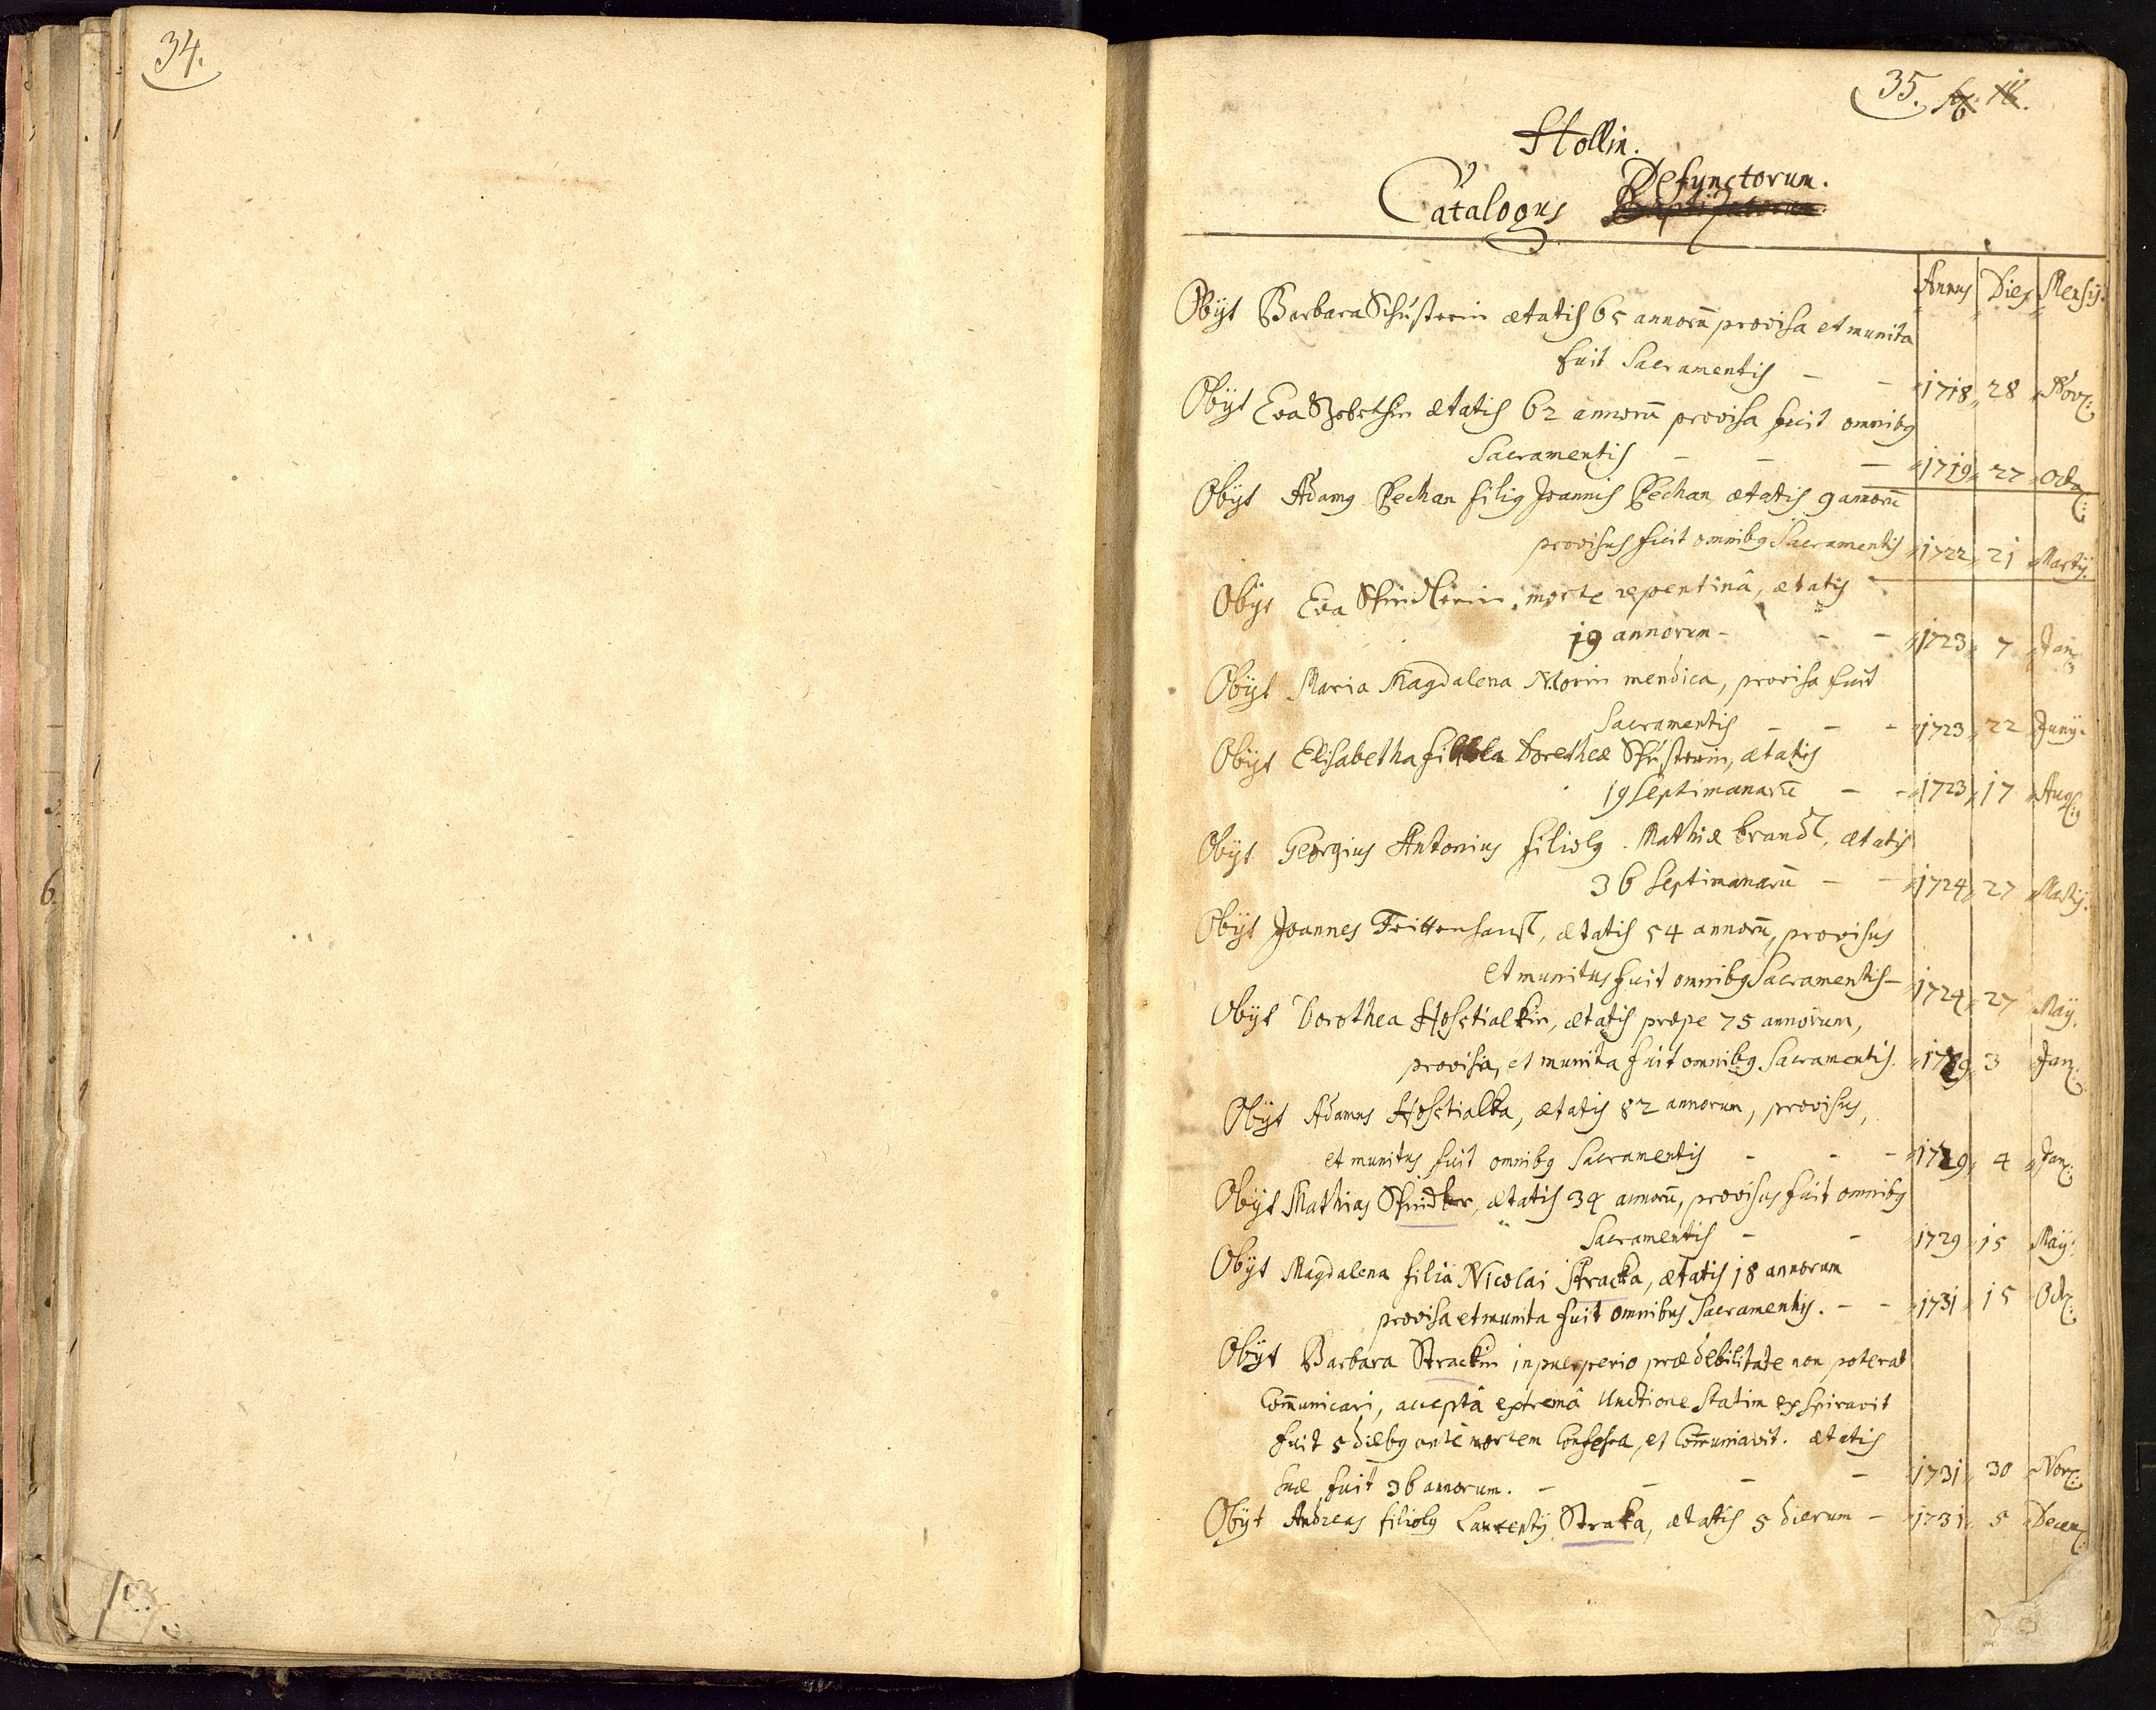 34.
35.
Hollin.
Defunctorum.
Catalogus Baptisatorum.
Annus Dies Mensis.
Obijt Barbara Schusterin ætatis 65 annorū provisa et munita
fuit Sacramentis - - 1718 28 Nov:
Obijt Eva ætatis 62 annorū provisa fuit omnibq
Sacramentis - - - 1719 27 Oct:
Obijt Adamq Pechan filiq Joannis Pechan, ætatis 9 annorū
provisus fuit omnibq Sacramentis 1722 21 Martij.
Obijt Eva Spindlerin morte repentinâ, ætatis
19 annorum - - - 1723 7 Jan:
Obijt Maria Magdalena N. mendica, provisa fuit
Sacramentis - - - 1723 22 Junij.
Obijt Elisabetha Dorotheæ Schusterin, ætatis
19 septimanarū - - 1723 17 Aug:
Obijt Georgius Antonius filiolq Mathiæ brandl, ætatis
36 septimanarū - - 1724 27 Martij.
Obijt Joannes ætatis 54 annorū, provisus
et munitus fuit omnibq Sacramentis - 1724 27 Maij.
Obijt Dorothea Hostialkin, ætatis prope 75 annorum,
provisa, et munita fuit omnibq Sacramentis. 1729 3 Jan:
Obijt Adamus Hostialka, ætatis 82 annorum, provisus,
et munitus fuit omnibq Sacramentis - - - 1729 4 Jan:
Obijt Mathias Spindler, ætatis 34 annorū, provisus fuit omnibq
Sacramentis - - 1729 15 Maij.
Obijt Magdalena filia Nicolai Stracka, ætatis 18 annorum
provisa et munita fuit omnibus Sacramentis. - - 1731 15 Oct:
Obijt Barbara Strackin in puerperio præ debilitate non poterat
Com̄unicari, acceptâ extremâ Unctione statim exspiravit
fuit 5 diebq ante mortem Confessa, et Com̄unicavit. ætatis
suæ fuit 36 annorum. - - - - 1731 30 Nov:
Obijt Andreas filiolq Laurentij Straka, ætatis 5 dierum - 1731 5 Decem: